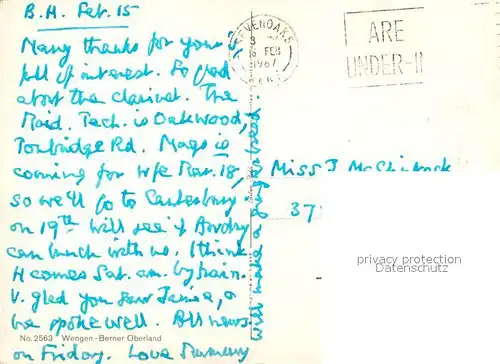 B.H. Feb. 15
Many thanks for yours
full of interest. So glad
about the clarinet. The
Maid. Tech. is Oakwood,
Tonbridge Rd. Mags is
coming for w/e Mar. 18,
so we'll go to Canterbury
on 19th will see if Audrey
can lunch with us. I think
H comes Sat. am. by train.
V. glad you saw Jamie, &
he spoke well. All news
on Friday. Love Mummy
will make a gingerbread.
No. 2563 Wengen - Berner Oberland
SEVENOAKS
FEB
1967
KENT
ARE
UNDER-I
Miss J McClintock
37
privacy protection
Datenschutz